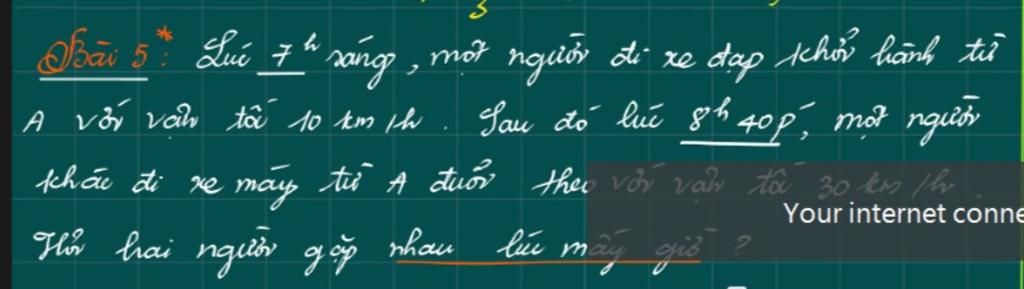 Bài 5*: Lúc 7h sáng, một người đi xe đạp khởi hành từ
A với vận tốc 10 km/h. Sau đó lúc 8h 40p, một người
khác đi xe máy từ A đuổi theo với vận tốc 30 km/h.
Your internet conne
Hỏi hai người gặp nhau lúc mấy giờ?